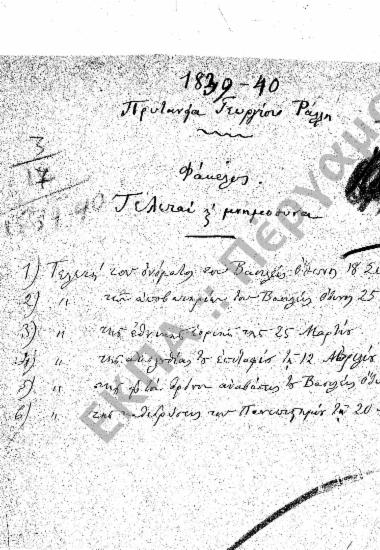 1839-40
Πρυτανεία Γεωργίου Ράλλη
3
17
1839-40
Φάκελος.
Τελεταί & μνημόσυνα
1) Τελετή του ονόματος του Βασιλέως Όθωνος 18
2) " των αποβατηρίων του Βασιλέως Όθωνος 25
3) " της εθνικής εορτής της 25 Μαρτίου
4) " της ακολουθίας του επιταφίου τη 12 Απριλίου
5) " της αναβάσεως του Βασιλέως
6) " της καθιδρύσεως του Πανεπιστημίου τη 20
ΕΚΠΑ :: Πέργαμος